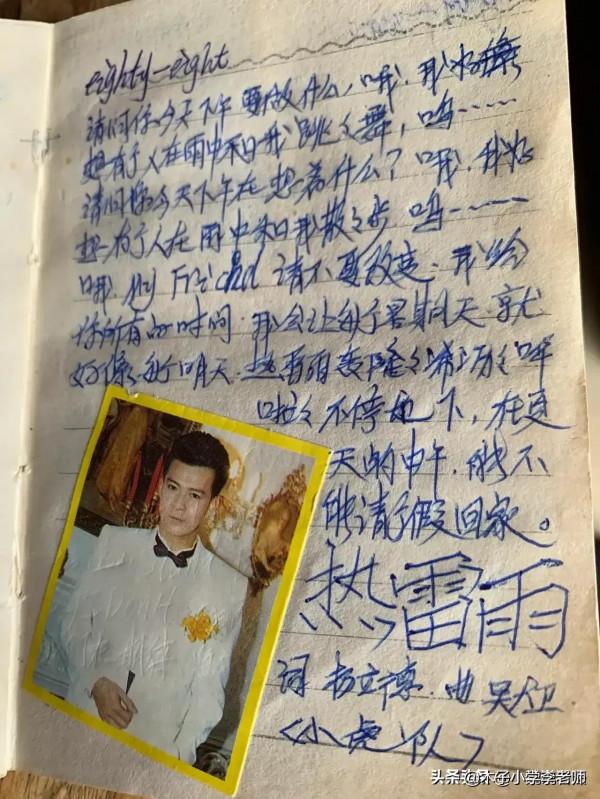 eighty-eight
请问你今天下午要做什么，哦，我好
想有个人在雨中和我跳々舞，呜……
请问你今天下午在想着什么？哦，我好
想有个人在雨中和我散々步 呜……
哦，My Friend 请不要改变，我给
你所有的时间，我会让每个星期天就
好像每个明天，热雷雨轰隆々淅沥々哗
啦々不停地下，在夏
天的中午，能不
能请个假回家。
热雷雨
词 杨立德 曲 吴大卫
〈小虎队〉
头条 @木子小学李老师